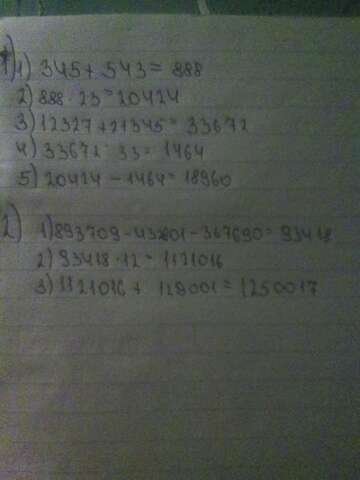 1) 1) 345 + 543 = 888
2) 888 · 23 = 20424
3) 12327 + 21345 = 33672
4) 33672 : 33 = 1464
5) 20424 - 1464 = 18960
2) 1) 893709 - 432601 - 367690 = 93418
2) 93418 · 12 = 1121016
3) 1121016 + 129001 = 1250017